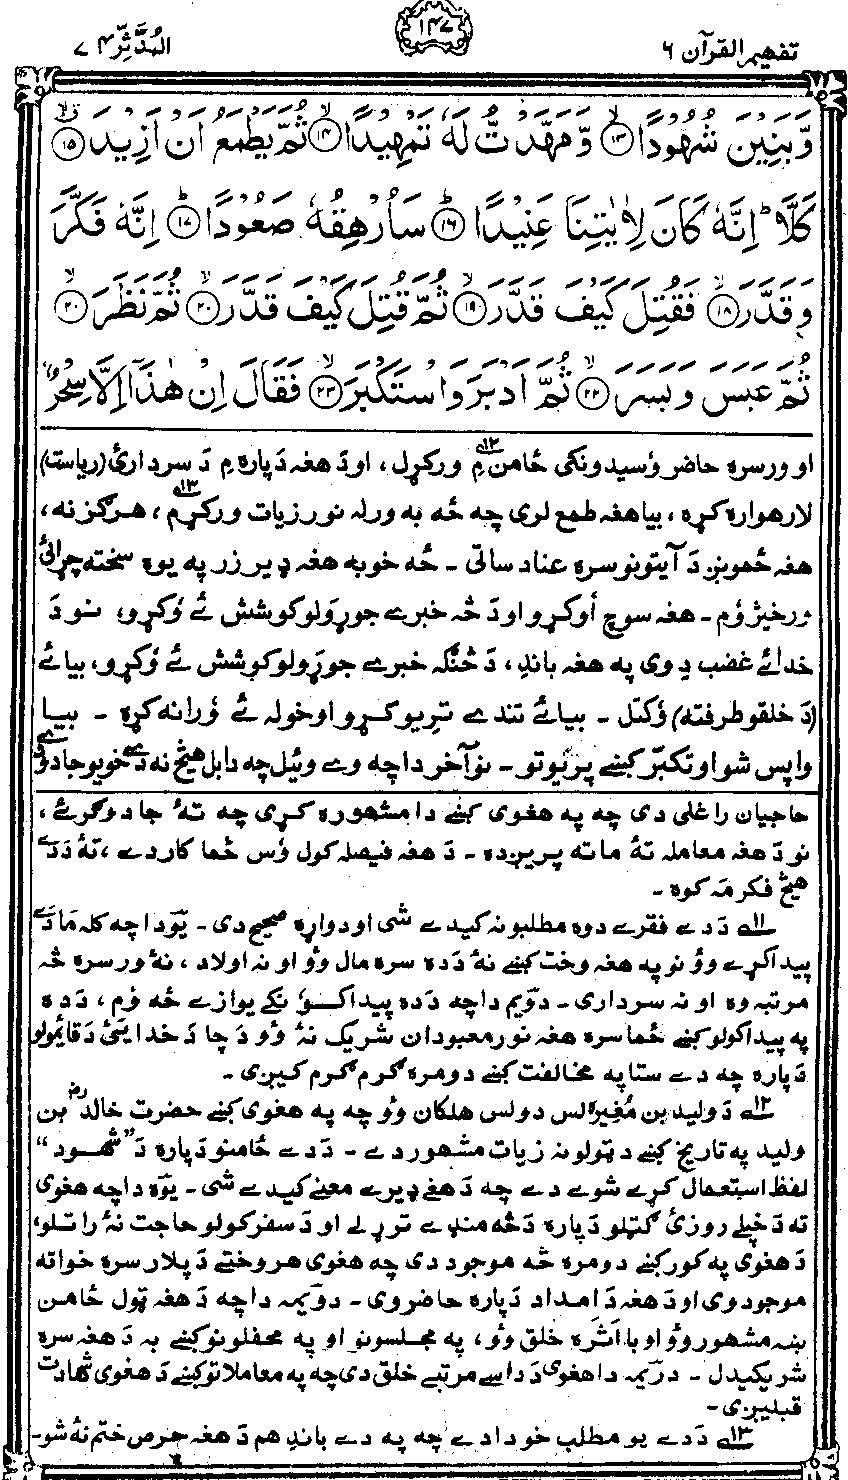 تفهيم القرآن ۶
۱۴۷
المُدَّثِّر ۷۴
وَّبَنِيْنَ شُهُوْدًا ۙ﴿۱۳﴾ وَّمَهَّدْتُّ لَهٗ تَمْهِيْدًا ۙ﴿۱۴﴾ ثُمَّ يَطْمَعُ اَنْ اَزِيْدَ ۙ﴿۱۵﴾
كَلَّا ؕ اِنَّهٗ كَانَ لِاٰيٰتِنَا عَنِيْدًا ؕ﴿۱۶﴾ سَاُرْهِقُهٗ صَعُوْدًا ؕ﴿۱۷﴾ اِنَّهٗ فَكَّرَ
وَقَدَّرَ ۙ﴿۱۸﴾ فَقُتِلَ كَيْفَ قَدَّرَ ۙ﴿۱۹﴾ ثُمَّ قُتِلَ كَيْفَ قَدَّرَ ۙ﴿۲۰﴾ ثُمَّ نَظَرَ ۙ﴿۲۰﴾
ثُمَّ عَبَسَ وَبَسَرَ ۙ﴿۲۲﴾ ثُمَّ اَدْبَرَ وَاسْتَكْبَرَ ۙ﴿۲۳﴾ فَقَالَ اِنْ هٰذَاۤ اِلَّا سِحْرٌ
او ورسره حاضر وُسيدونکی ځامن مِ ورکړل، او دَ هغه دَ پاره مِ دَ سردارئ (ریاست)
لار هواره کړه، بیا هغه طمع لری چه څه به ورله نور زیات ورکړم، هرګز نه،
هغه ځمونږ دَ آیتونو سره عناد ساتی ـ څه خو به هغه ډیر زر په یوه سخته چړائی
ورخیژوُم ـ هغه سوچ اُوکړو او دَ څه خبرے جوړولو کوشش ئے وُکړو، نو دَ
خدائے غضب دِ وی په هغه باندِ، دَ څنګه خبرے جوړولو کوشش ئے وُکړو، بیا ئے
(دَ خلقو طرفته) وُکتل ـ بیا ئے تندے تریو کړو او خوله ئے وُرانه کړه ـ بیا
واپس شو او تکبّر کښے پریوتو ـ نو آخر دا چه وے وئیل چه دا بل هیڅ نه دے خو یو جادو
حاجیان راغلی دی چه په هغوی کښے دا مشهوره کړی چه تهٔ جادوګر ئے،
نو دَ هغه معامله تهٔ ما ته پریږده ـ دَ هغه فیصله کول وُس ځما کار دے، تهٔ دَ دے
هیڅ فکر مه کوه ـ
۱۱ دَ دے فقرے دوه مطلبونه کیدے شی او دواړه صحیح دی ـ یوَ دا چه کله ما دے
پیدا کړے وؤ نو په هغه وخت کښے نهٔ دَ ده سره مال وؤ او نه اولاد، نهٔ ورسره څه
مرتبه وه او نه سرداری ـ دوَیم دا چه دَ ده پیدا کوُنکے یوازے څه وُم، دَ ده
په پیدا کولو کښے ځما سره هغه نور معبودان شریک نهٔ وؤ دَ چا دَ خدایئ دَ قائمولو
دَ پاره چه دے ستا په مخالفت کښے دومره ګرم ګرم کیږی ـ
۱۲ دَ ولید بن مُغیرَ لس دولس هلکان وؤ چه په هغوی کښے حضرت خالدؓ بن
ولید په تاریخ کښے دَ ټولو نه زیات مشهور دے ـ دَ دے ځامنو دَ پاره دَ ”شُهود“
لفظ استعمال کړے شوے دے چه دَ هغے ډیرے معنے کیدے شی ـ یوَه دا چه هغوی
ته دَ خپلے روزئ ګټلو دَ پاره دَ څه منډے تړلے او دَ سفر کولو حاجت نهٔ راتلو،
دَ هغوی په کور کښے دومره څه موجود دی چه هغوی هر وختے دَ پلار سره خواته
موجود وی او دَ هغه دَ امداد دَ پاره حاضر وی ـ دوَیمه دا چه دَ هغه ټول ځامن
ښه مشهور وؤ او با اثره خلق وؤ، په مجلسونو او په محفلونو کښے به دَ هغه سره
شریکیدل ـ دریَمه دا هغوی دَ داسے مرتبے خلق دی چه په معاملاتو کښے دَ هغوی شهادت
قبلیږی ـ
۱۳ دَ دے یو مطلب خو دا دے چه په دے باندِ هم دَ هغه حرص ختم نهٔ شو ـ